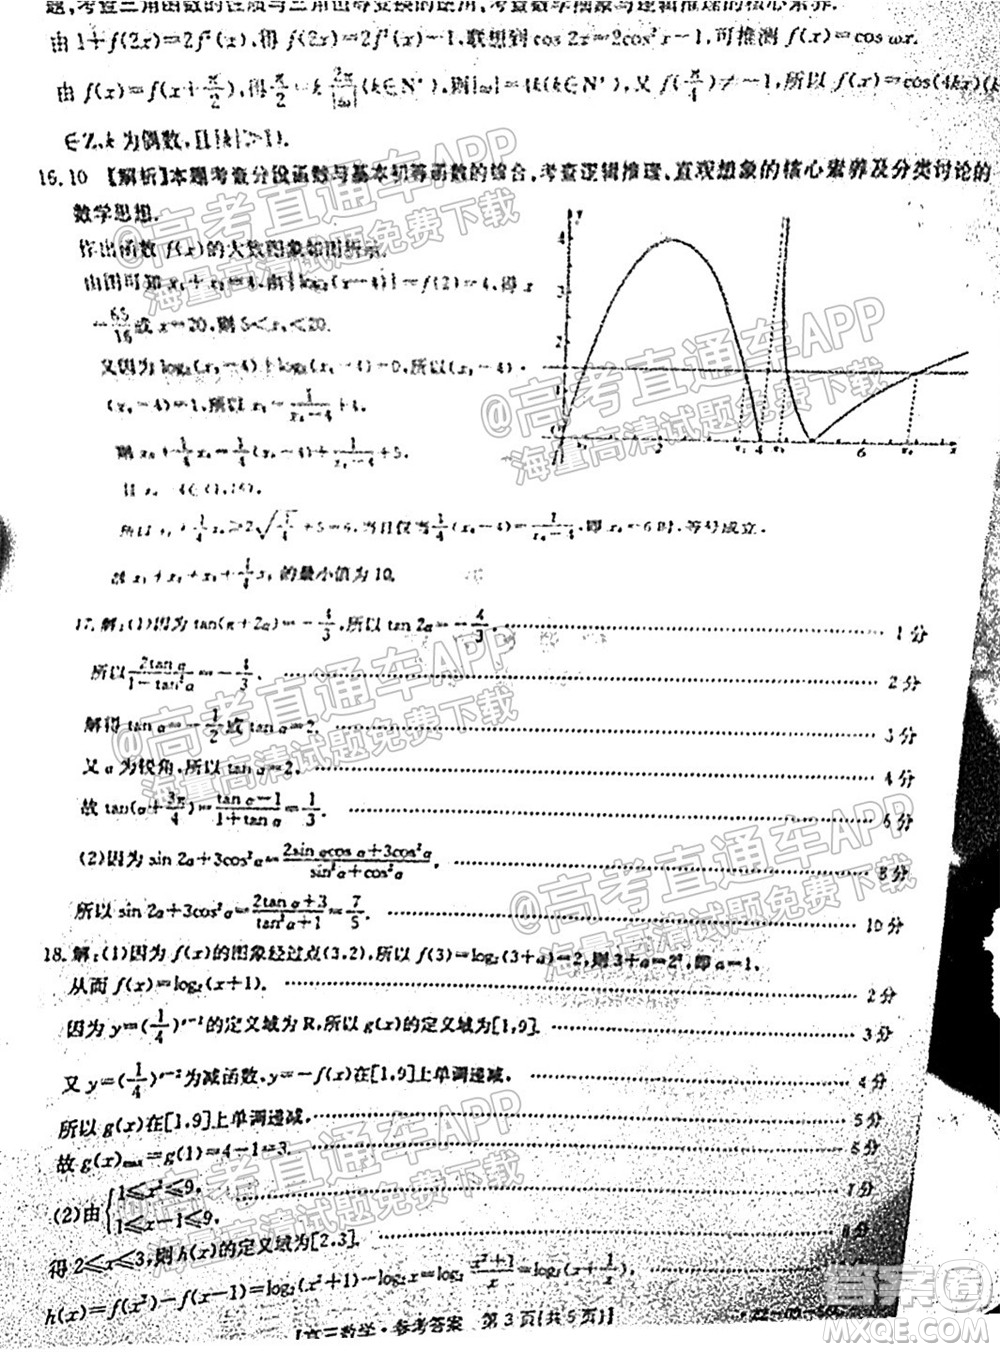 题,考查三角函数的性质与三角恒等变换的运用,考查数学抽象与逻辑推理的核心素养.
由 1+f(2x)=2f²(x),得 f(2x)=2f²(x)−1,联想到 cos 2x=2cos²x−1,可推测 f(x)=cos ωx.
由 f(x)=f(x+π/2),得 π/2=k·2π/|ω|(k∈N*),则|ω|=4k(k∈N*),又 f(π/4)≠−1,所以 f(x)=cos(4kx)(k
∈Z,k 为偶数,且|k|≥1).
16.10 【解析】本题考查分段函数与基本初等函数的综合,考查逻辑推理、直观想象的核心素养及分类讨论的
数学思想.
作出函数 f(x)的大致图象如图所示.
由图可知 x₁+x₂=4,由|log₂(x−4)|=f(2)=4,得 x
=65/16或 x=20,则 5<x₄<20.
又因为 log₂(x₃−4)+log₂(x₄−4)=0,所以(x₃−4)·
(x₄−4)=1,所以 x₃=1/(x₄−4)+4,
则 x₃+1/4x₄=1/4(x₄−4)+1/(x₄−4)+5.
且 x₄−4∈(1,16),
所以 x₃+1/4x₄≥2√(1/4)+5=6,当且仅当1/4(x₄−4)=1/(x₄−4),即 x₄=6 时,等号成立.
故 x₁+x₂+x₃+1/4x₄ 的最小值为 10.
y
4
3
2
1
O
x₁
2
x₂ 4 x₃
6
x₄
x
17.解:(1)因为 tan(π+2α)=−4/3,所以 tan 2α=−4/3. 1 分
所以 2tan α/(1−tan²α)=−4/3. 2 分
解得 tan α=−1/2或 tan α=2. 3 分
又 α 为锐角,所以 tan α=2. 4 分
故 tan(α+3π/4)=(tan α−1)/(1+tan α)=1/3. 6 分
(2)因为 sin 2α+3cos²α=(2sin αcos α+3cos²α)/(sin²α+cos²α), 8 分
所以 sin 2α+3cos²α=(2tan α+3)/(tan²α+1)=7/5. 10 分
18.解:(1)因为 f(x)的图象经过点(3,2),所以 f(3)=log₂(3+a)=2,则 3+a=2²,即 a=1,
从而 f(x)=log₂(x+1). 2 分
因为 y=(1/4)ˣ⁻²的定义域为 R,所以 g(x)的定义域为[1,9]. 3 分
又 y=(1/4)ˣ⁻²为减函数,y=−f(x)在[1,9]上单调递减, 4 分
所以 g(x)在[1,9]上单调递减. 5 分
故 g(x)max=g(1)=4−1=3. 6 分
(2)由{1≤x²≤9, 1≤x−1≤9, 7 分
得 2≤x≤3,则 h(x)的定义域为[2,3]. 8 分
h(x)=log₂(x²+1)−log₂x=log₂(x²+1)/x=log₂(x+1/x).
【高三数学·参考答案 第 3 页(共 5 页)】
@高考直通车APP
海量高清试题免费下载
@高考直通车APP
海量高清试题免费下载
@高考直通车APP
海量高清试题免费下载
@高考直通车APP
海量高清试题免费下载
@高考直通车APP
海量高清试题免费下载
答案圈
MXQE.COM